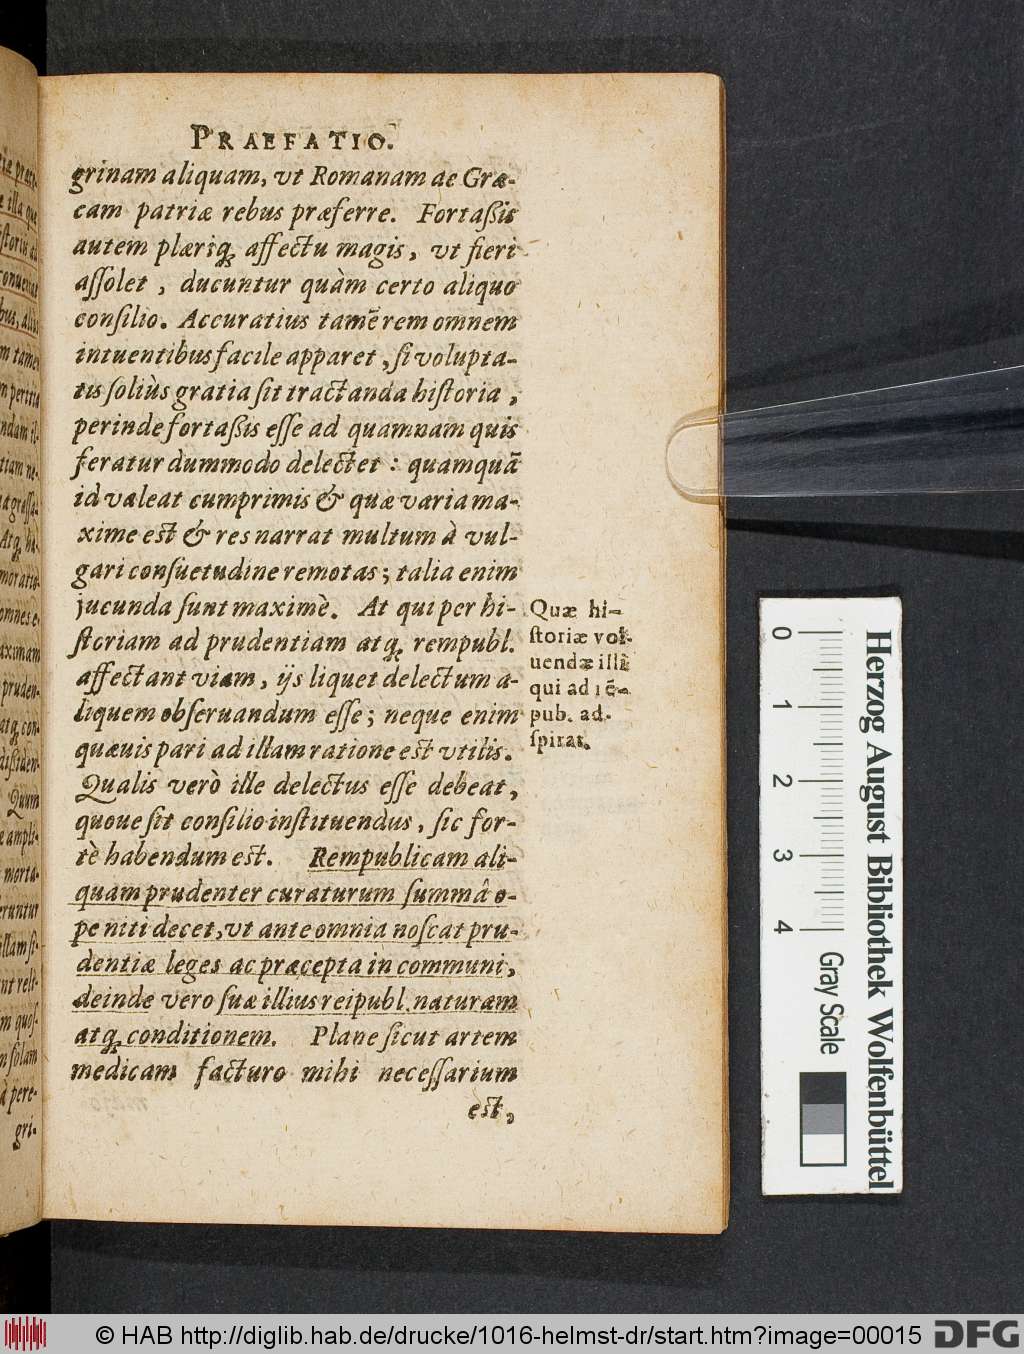 PRAEFATIO.
grinam aliquam, vt Romanam ac Græ-
cam patriæ rebus præferre. Fortaßis
autem plæriq; affectu magis, vt fieri
aſſolet, ducuntur quàm certo aliquo
conſilio. Accuratius tamē rem omnem
intuentibus facile apparet, ſi volupta-
tis ſoliùs gratia ſit tractanda hiſtoria,
perinde fortaßis eſſe ad quamnam quis
feratur dummodo delectet: quamquā
id valeat cumprimis & quæ varia ma-
xime est & res narrat multum à vul-
gari conſuetudine remotas; talia enim
jucunda ſunt maximè. At qui per hi-
ſtoriam ad prudentiam atq; rempubl.
affectant viam, ijs liquet delectum a-
liquem obſeruandum eſſe; neque enim
quæuis pari ad illam ratione est vtilis.
Qualis verò ille delectus eſſe debeat,
quoue ſit conſilio inſtituendus, ſic for-
tè habendum est. Rempublicam ali-
quam prudenter curaturum ſummâ o-
pe niti decet, vt ante omnia noſcat pru-
dentiæ leges ac præcepta in communi,
deinde vero ſuæ illius reipubl. naturam
atq; conditionem. Plane ſicut artem
medicam facturo mihi neceſſarium
est,
Quæ hi-
ſtoriæ vol-
uendæ illi
qui ad rē-
pub. ad-
ſpirat.
0 1 2 3 4
Gray Scale
Herzog August Bibliothek Wolfenbüttel
© HAB http://diglib.hab.de/drucke/1016-helmst-dr/start.htm?image=00015
DFG